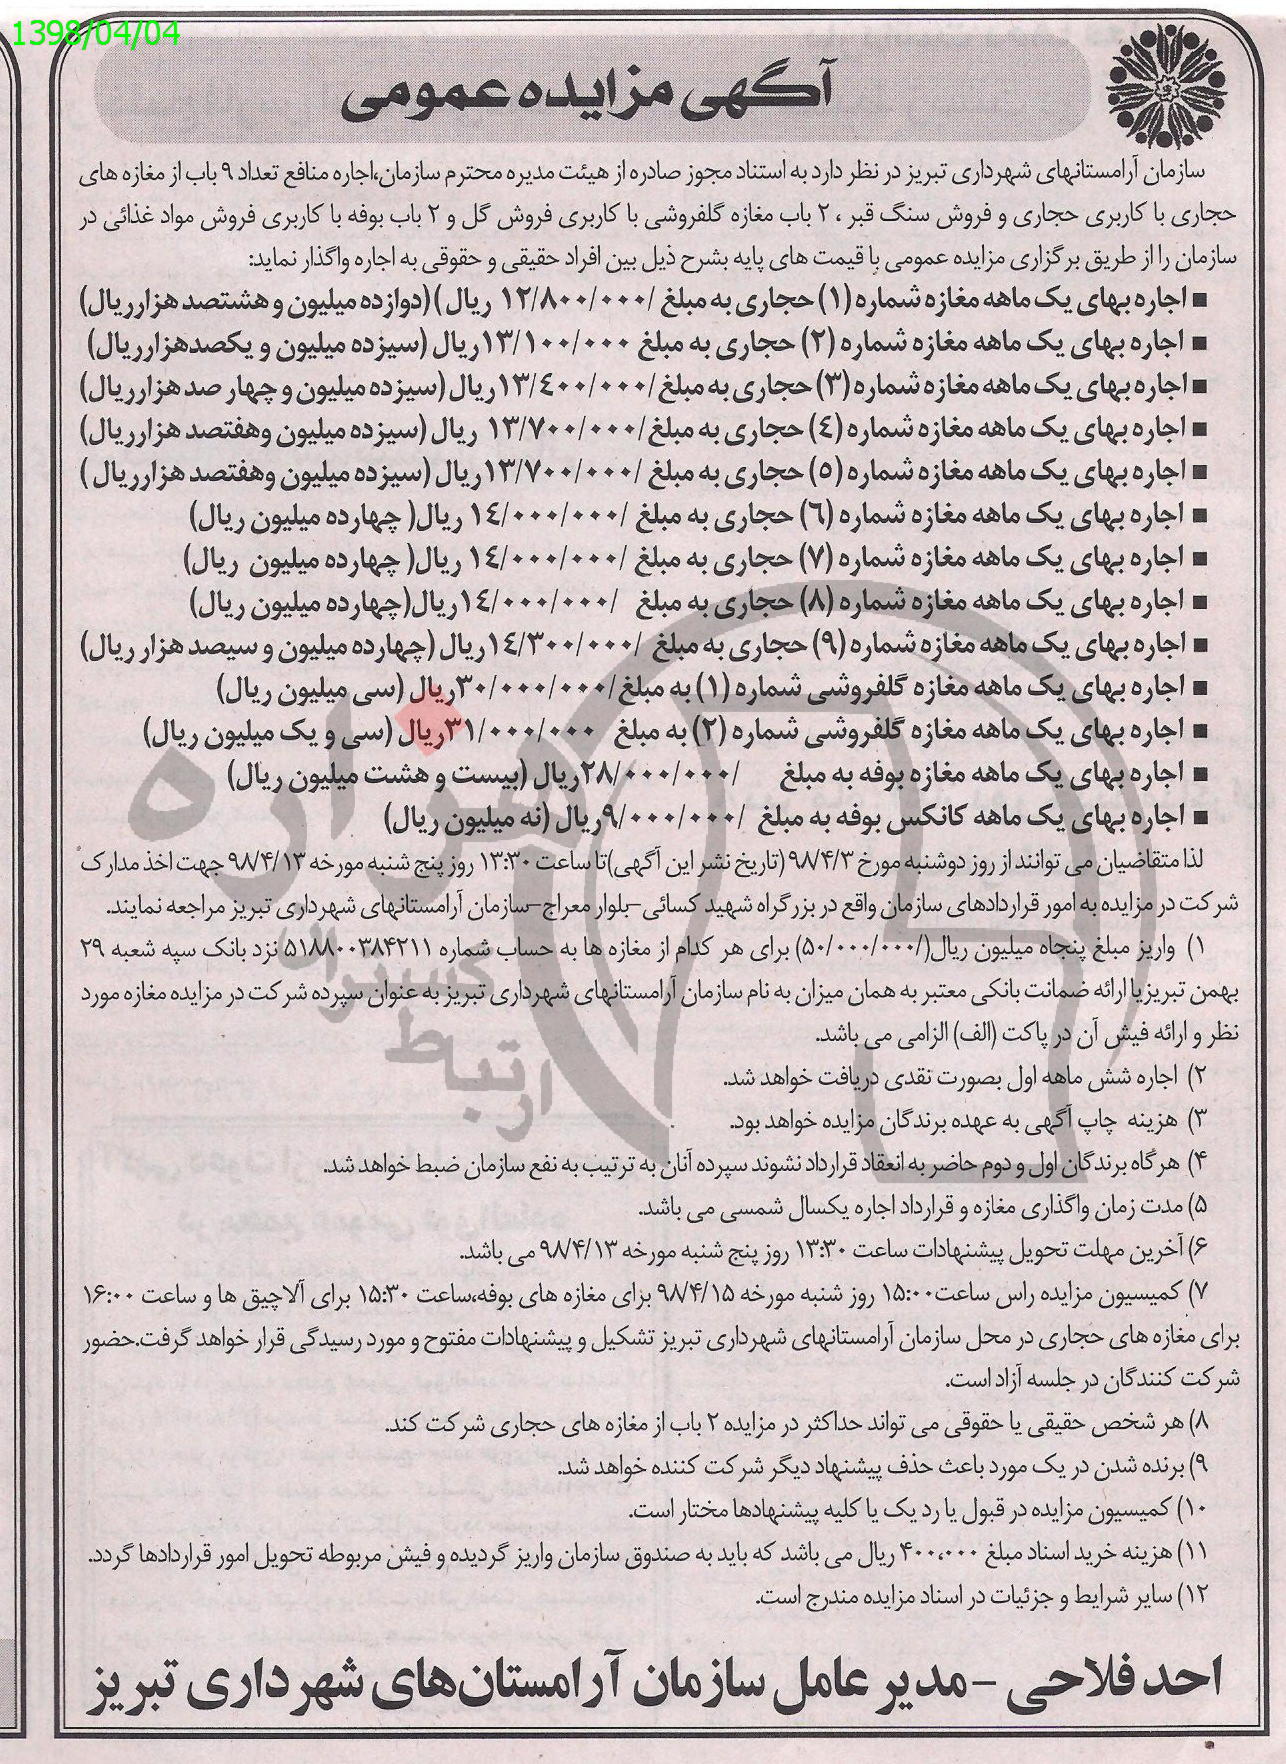 1398/04/04
آگهی مزایده عمومی
سازمان آرامستانهای شهرداری تبریز در نظر دارد به استناد مجوز صادره از هیئت مدیره محترم سازمان،اجاره منافع تعداد ۹ باب از مغازه های
حجاری با کاربری حجاری و فروش سنگ قبر ، ۲ باب مغازه گلفروشی با کاربری فروش گل و ۲ باب بوفه با کاربری فروش مواد غذائی در
سازمان را از طریق برگزاری مزایده عمومی با قیمت های پایه بشرح ذیل بین افراد حقیقی و حقوقی به اجاره واگذار نماید:
■ اجاره بهای یک ماهه مغازه شماره (۱) حجاری به مبلغ /۱۲/۸۰۰/۰۰۰ ریال )(دوازده میلیون و هشتصد هزارریال)
■ اجاره بهای یک ماهه مغازه شماره (۲) حجاری به مبلغ ۱۳/۱۰۰/۰۰۰ریال (سیزده میلیون و یکصدهزارریال)
■ اجاره بهای یک ماهه مغازه شماره (۳) حجاری به مبلغ/۱۳/٤۰۰/۰۰۰ریال (سیزده میلیون و چهار صد هزارریال)
■ اجاره بهای یک ماهه مغازه شماره (٤) حجاری به مبلغ/۱۳/۷۰۰/۰۰۰ ریال (سیزده میلیون وهفتصد هزارریال)
■ اجاره بهای یک ماهه مغازه شماره (۵) حجاری به مبلغ /۱۳/۷۰۰/۰۰۰ریال (سیزده میلیون وهفتصد هزارریال )
■ اجاره بهای یک ماهه مغازه شماره (٦) حجاری به مبلغ /۱٤/۰۰۰/۰۰۰ ریال( چهارده میلیون ریال)
■ اجاره بهای یک ماهه مغازه شماره (۷) حجاری به مبلغ /۱٤/۰۰۰/۰۰۰ ریال( چهارده میلیون ریال)
■ اجاره بهای یک ماهه مغازه شماره (۸) حجاری به مبلغ /۱٤/۰۰۰/۰۰۰ریال(چهارده میلیون ریال)
■ اجاره بهای یک ماهه مغازه شماره (۹) حجاری به مبلغ /۱٤/۳۰۰/۰۰۰ریال (چهارده میلیون و سیصد هزار ریال)
■ اجاره بهای یک ماهه مغازه گلفروشی شماره (۱) به مبلغ/۳۰/۰۰۰/۰۰۰ریال (سی میلیون ریال)
■ اجاره بهای یک ماهه مغازه گلفروشی شماره (۲) به مبلغ ۳۱/۰۰۰/۰۰۰ریال (سی و یک میلیون ریال)
■ اجاره بهای یک ماهه مغازه بوفه به مبلغ /۲۸/۰۰۰/۰۰۰ریال (بیست و هشت میلیون ریال)
■ اجاره بهای یک ماهه کانکس بوفه به مبلغ /۹/۰۰۰/۰۰۰ریال (نه میلیون ریال)
لذا متقاضیان می توانند از روز دوشنبه مورخ ۹۸/۴/۳ (تاریخ نشر این آگهی)تا ساعت ۱۳:۳۰ روز پنج شنبه مورخه ۹۸/۴/۱۳ جهت اخذ مدارک
شرکت در مزایده به امور قراردادهای سازمان واقع در بزرگراه شهید کسائی-بلوار معراج-سازمان آرامستانهای شهرداری تبریز مراجعه نمایند.
۱) واریز مبلغ پنجاه میلیون ریال(/۵۰/۰۰۰/۰۰۰) برای هر کدام از مغازه ها به حساب شماره ۵۱۸۸۰۰۳۸۴۲۱۱ نزد بانک سپه شعبه ۲۹
بهمن تبریزیا ارائه ضمانت بانکی معتبر به همان میزان به نام سازمان آرامستانهای شهرداری تبریز به عنوان سپرده شرکت در مزایده مغازه مورد
نظر و ارائه فیش آن در پاکت (الف) الزامی می باشد.
۲) اجاره شش ماهه اول بصورت نقدی دریافت خواهد شد.
۳) هزینه چاپ آگهی به عهده برندگان مزایده خواهد بود.
۴) هرگاه برندگان اول و دوم حاضر به انعقاد قرارداد نشوند سپرده آنان به ترتیب به نفع سازمان ضبط خواهد شد.
۵) مدت زمان واگذاری مغازه و قرارداد اجاره یکسال شمسی می باشد.
۶) آخرین مهلت تحویل پیشنهادات ساعت ۱۳:۳۰ روز پنج شنبه مورخه ۹۸/۴/۱۳ می باشد.
۷) کمیسیون مزایده راس ساعت۱۵:۰۰ روز شنبه مورخه ۹۸/۴/۱۵ برای مغازه های بوفه،ساعت ۱۵:۳۰ برای آلاچیق ها و ساعت ۱۶:۰۰
برای مغازه های حجاری در محل سازمان آرامستانهای شهرداری تبریز تشکیل و پیشنهادات مفتوح و مورد رسیدگی قرار خواهد گرفت.حضور
شرکت کنندگان در جلسه آزاد است.
۸) هر شخص حقیقی یا حقوقی می تواند حداکثر در مزایده ۲ باب از مغازه های حجاری شرکت کند.
۹) برنده شدن در یک مورد باعث حذف پیشنهاد دیگر شرکت کننده خواهد شد.
۱۰) کمیسیون مزایده در قبول یا رد یک یا کلیه پیشنهادها مختار است.
۱۱) هزینه خرید اسناد مبلغ ۴۰۰،۰۰۰ ریال می باشد که باید به صندوق سازمان واریز گردیده و فیش مربوطه تحویل امور قراردادها گردد.
۱۲) سایر شرایط و جزئیات در اسناد مزایده مندرج است.
احد فلاحی - مدیر عامل سازمان آرامستان‌های شهرداری تبریز
هزاره
گستران
ارتباط